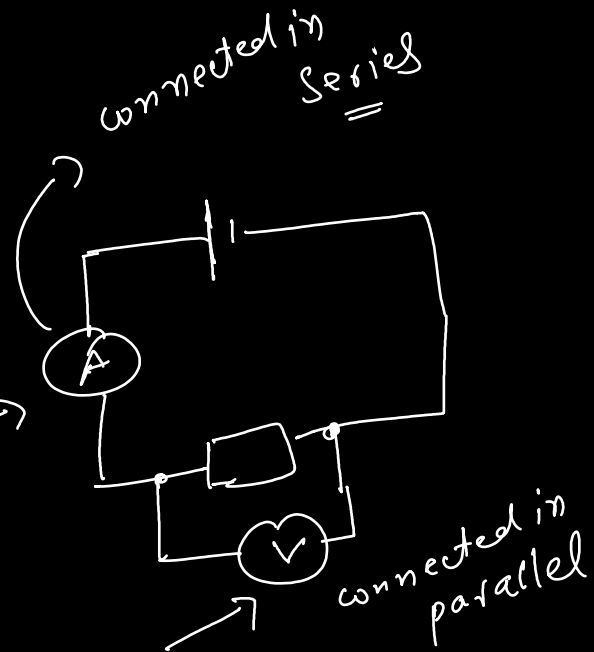 connected in
series
A
V
connected in
parallel